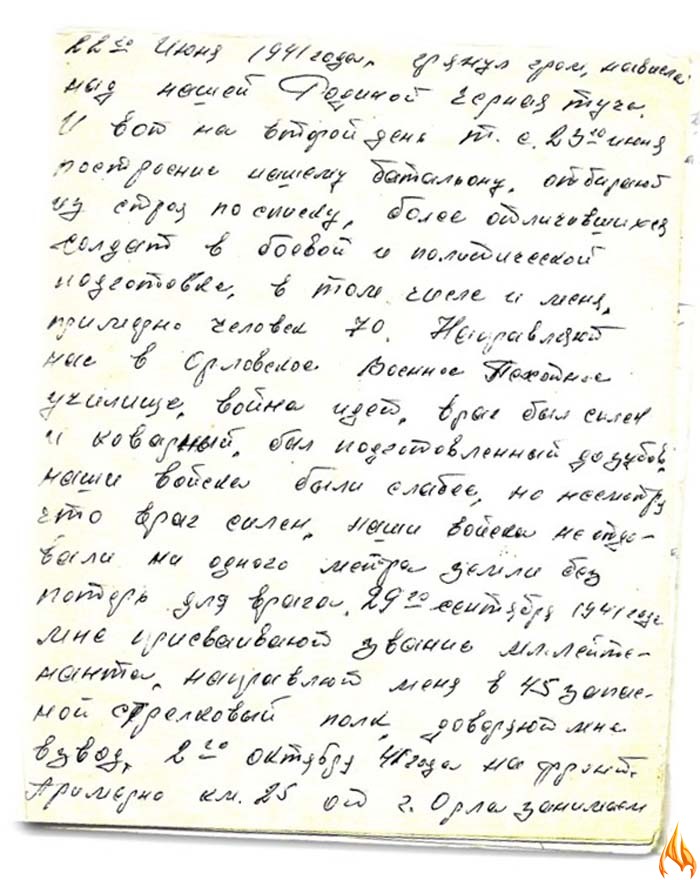 22го Июня 1941 года, грянул гром, нависла
над нашей Родиной черная туча.
И вот на второй день т.е. 23го июня
построение нашему батальону, отбирают
из строя по списку, более отличившихся
солдат в боевой и политической
подготовке, в том числе и меня,
примерно человек 70. Направляют
нас в Орловское Военное Пехотное
училище, война идет, враг был силен
и коварный, был подготовленный до зубов,
наши войска были слабее, но несмотря
что враг силен, наши войска не отда-
вали ни одного метра земли без
потерь для врага. 29го сентября 1941 года
мне присваивают звание мл.лейте-
нанта, направлют меня в 45 запас-
ной стрелковый полк, доверяют мне
взвод, 2го октября 41 года на фронт.
Примерно км. 25 от г. Орла занимаем